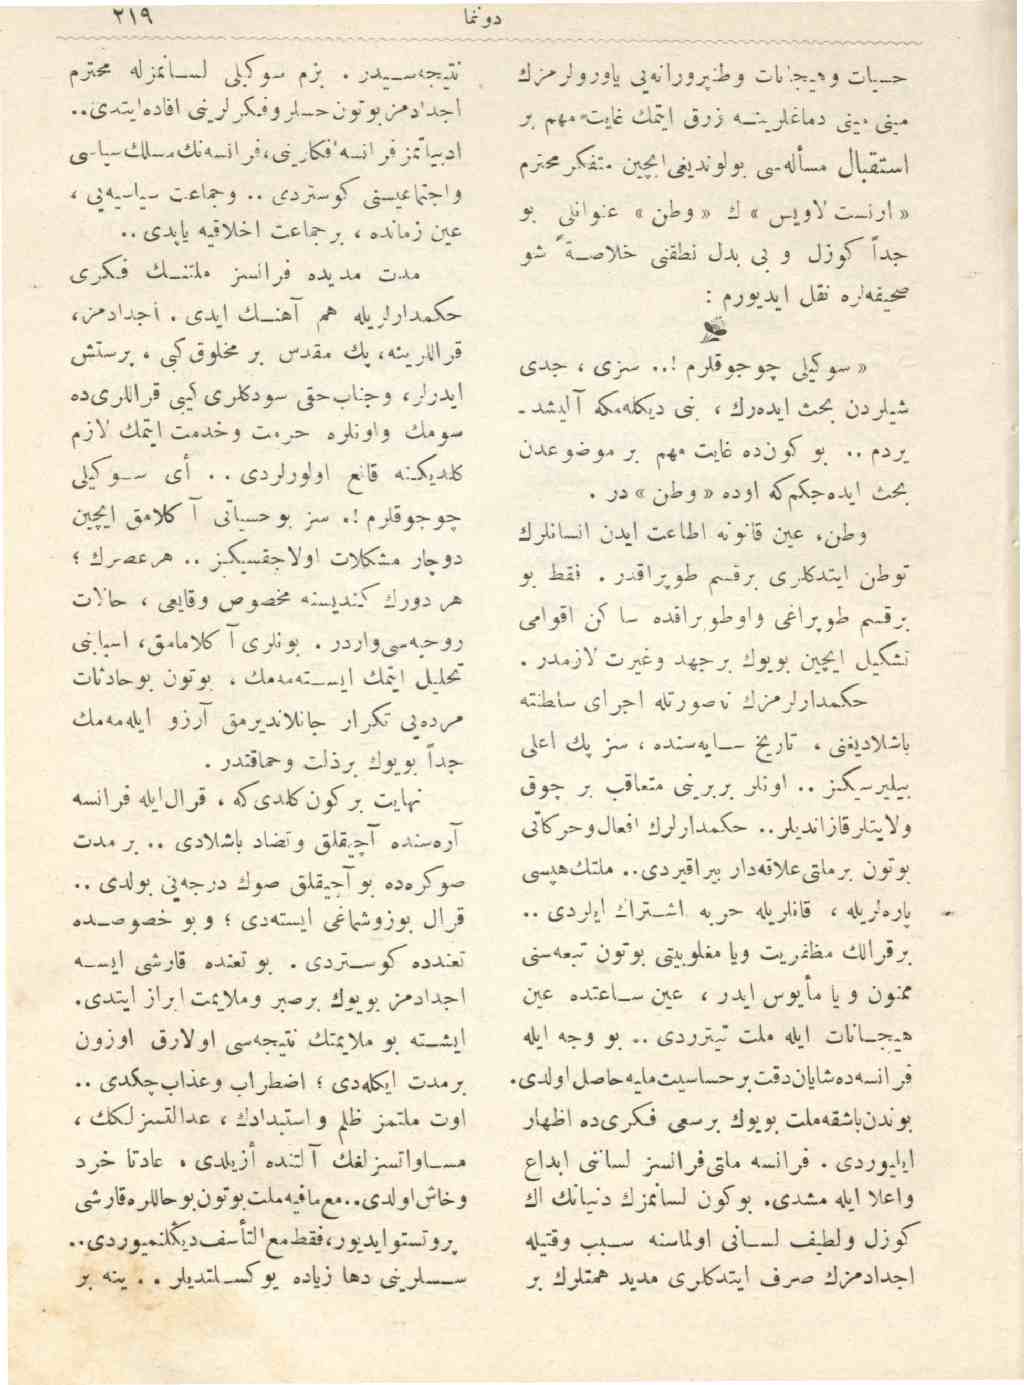 دونما
٢١٩
حسیات و هیجانات وطنپرورانه‌یی یاورولرمزك
مینی مینی دماغلرینه زرق ایتمك غایت مهم بر
استقبال مسأله‌سی بولوندیغی ایچین متفكر محترم
« ارنست لاویس » ك « وطن » عنوانلی بو
جداً كوزل و بی بدل نطقنی خلاصةً شو
صحیفه‌لره نقل ایدیورم :
« سوكیلی چوجوقلرم !.. سزی ، جدی
شیلردن بحث ایده‌رك ، بنی دیكله‌مكه آلیشد ـ
یردم .. بو كون‌ده غایت مهم بر موضوعدن
بحث ایده‌جكم‌كه اوده « وطن » در .
وطن، عین قانونه اطاعت ایدن انسانلرك
توطن ایتدكلری برقسم طوپراقدر . فقط بو
برقسم طوپراغی واوطوپراقده ساكن اقوامی
تشكیل ایچین بویوك برجهد وغیرت لازمدر .
حكمدارلرمزك نه‌صورتله اجرای سلطنته
باشلادیغنی ، تاریخ سایه‌سنده ، سز پك اعلی
بیلیرسیكز .. اونلر بربرینی متعاقب بر چوق
ولایتلر قازاندیلر.. حكمدارلرك افعال وحركاتی
بوتون برملتی علاقه‌دار بیراقیردی.. ملتك هپسی
پاره‌لریله ، قانلریله حربه اشتراك ایلردی ..
برقرالك مظفریت ویا مغلوبیتی بوتون تبعه‌سنی
ممنون و یا مأیوس ایدر ، عین ساعتده عین
هیجانات ایله ملت تیترردی .. بو وجه ایله
فرانسه‌ده شایان دقت برحساسیت ملیه حاصل اولدی.
بوندن باشقه ملت بویوك برسعی فكری‌ده اظهار
ایلیوردی . فرانسه ملتی فرانسز لساننی ابداع
واعلا ایله مشدی. بوكون لسانمزك دنیانك اك
كوزل ولطیف لسانی اولماسنه سبب وقتیله
اجدادمزك صرف ایتدكلری مدید همتلرك بر
نتیجه‌سیدر . بزم سوكیلی لسانمزله محترم
اجدادمز بوتون حسلر وفكرلرینی افاده ایتدی..
ادبیاتمز فرانسه افكارینی، فرانسه‌نك مسلك سیاسی
واجتماعیسنی كوستردی .. وجماعت سیاسیه‌یی ،
عین زمانده ، برجماعت اخلاقیه یاپدی..
مدت مدیده فرانسز ملتنك فكری
حكمدارلریله هم آهنك ایدی . اجدادمز،
قراللرینه، پك مقدس بر مخلوق كبی ، پرستش
ایدرلر، وجناب‌حقی سودكلری كبی قراللری‌ده
سومك واونلره حرمت وخدمت ایتمك لازم
كلدیكنه قانع اولورلردی .. أی سوكیلی
چوجوقلرم !. سز بوحسیاتی آكلامق ایچین
دوچار مشكلات اولاجقسیكز .. هرعصرك ؛
هر دورك كندیسنه مخصوص وقایعی ، حالات
روحیه‌سی واردر . بونلری آكلامامق، اسبابنی
تحلیل ایتمك ایسته‌مه‌مك ، بوتون بوحادثات
مرده‌یی تكرار جانلاندیرمق آرزو ایله‌مه‌مك
جداً بویوك برذلت وحماقتدر .
نهایت بركون كلدی‌كه ، قرال‌ایله فرانسه
آره‌سنده آچیقلق وتضاد باشلادی .. بر مدت
صوكره‌ده بو آچیقلق صوك درجه‌یی بولدی ..
قرال بوزوشماغی ایسته‌دی ؛ و بو خصوصده
تعندده كوستردی . بو تعنده قارشی ایسه
اجدادمز بویوك برصبر وملایمت ابراز ایتدی.
ایشته بو ملایمتك نتیجه‌سی اولارق اوزون
برمدت ایكله‌دی ؛ اضطراب وعذاب چكدی ..
اوت ملتمز ظلم و استبدادك ، عدالتسزلكك ،
مساواتسزلغك آلتنده أزیلدی ، عادتا خرد
وخاش اولدی.. مع‌مافیه ملت بوتون بوحاللره قارشی
پروتستو ایدیور، فقط مع‌التأسف دیكلنمیوردی..
سسلرینی دها زیاده یوكسلتدیلر .. ینه بر